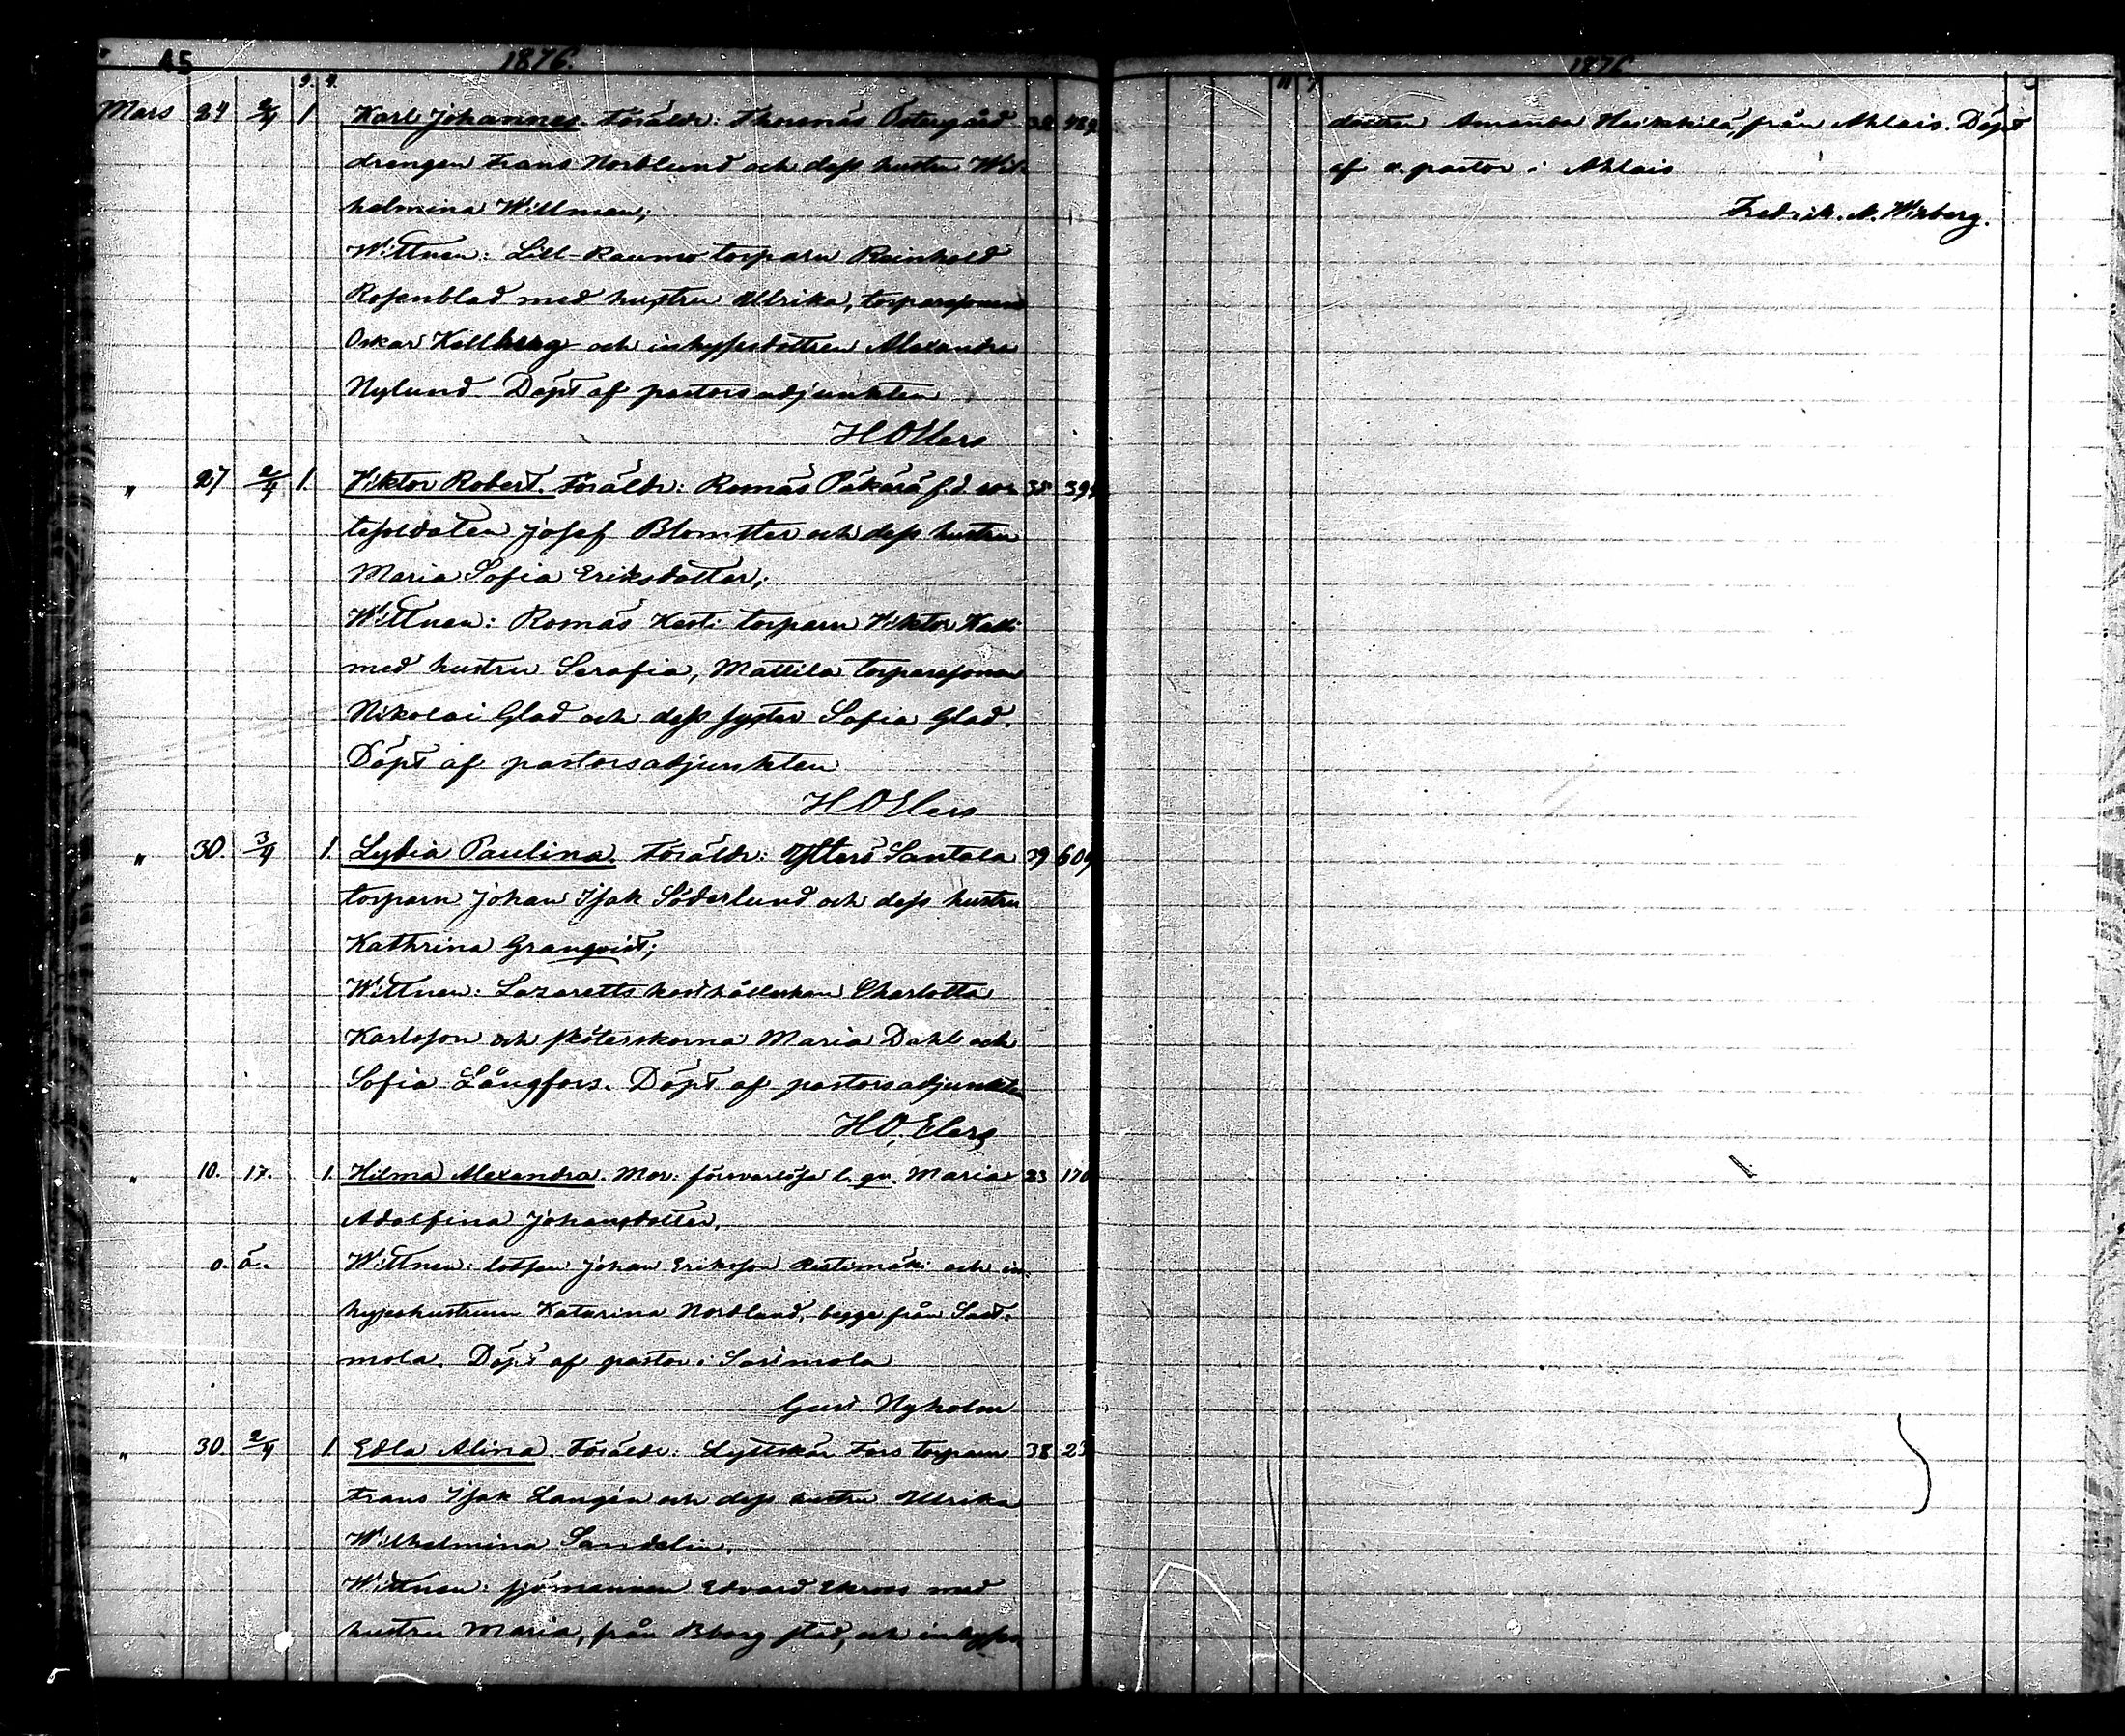 45 1876.
3. 4.
Mars 24 2/4 1 Karl Johannes. Föräldr: Thorsnäs Östergård 32 429
drengen Frans Nordlund och dess hustru Wil-
helmina Willman;
Wittnen: Lill-Raumo torparn Reinhold
Rosenblad med hustru Ulrika, torparesonen
Oskar Kellberg och inhysesdottren Alexandra
Nylund. Döpt af pastorsadjunkten
H O Elers
" 27 2/4 1. Viktor Robert. Föräldr: Rosnäs Päkärä f.d. ro- 35 394
tesoldaten Josef Blomster och dess hustru
Maria Sofia Eriksdotter;
Wittnen: Rosnäs Kesti torparn Viktor Kalli
med hustru Serafia, Mattila torparesonen
Nikolai Glad och dess syster Sofia Glad.
Döpt af pastorsadjunkten
H O Elers
" 30. 3/4 1. Lydia Paulina. Föräldr: Ytterö Santala 39 609
torparn Johan Isak Söderlund och dess hustru
Kathrina Granqvist;
Wittnen: Lazaretts hushållerskan Charlotta
Karlsson och sköterskorna Maria Dahl och
Sofia Långfors. Döpt af pastorsadjunkten
H O. Elers
" 10. 17. 1. Hilma Alexandra. Mor: försvarlösa l. qv. Maria 23 170
Adolfina Johansdotter.
o. ä. Wittnen: lotsen Johan Eriksson Ristimäki och in-
hyseshustrun Katarina Nordlund, begge från Sast-
mola. Döpt af pastor i Sastmola
Gust Nyholm
" 30. 2/4 1. Edla Alina. Föräldr: Lyttskär Fors torparn 38 23
Frans Isak Langén och dess hustru Ulrika
Wilhelmina Sandelin.
Wittnen: sjömannen Edvard Ekroos med
hustru Maria, från Bborg stad, och inhyses
1876
dottren Amanda Heikkilä, från Ahlais. Döpt
af v. pastor i Ahlais
Fredrik. N. Wiberg.